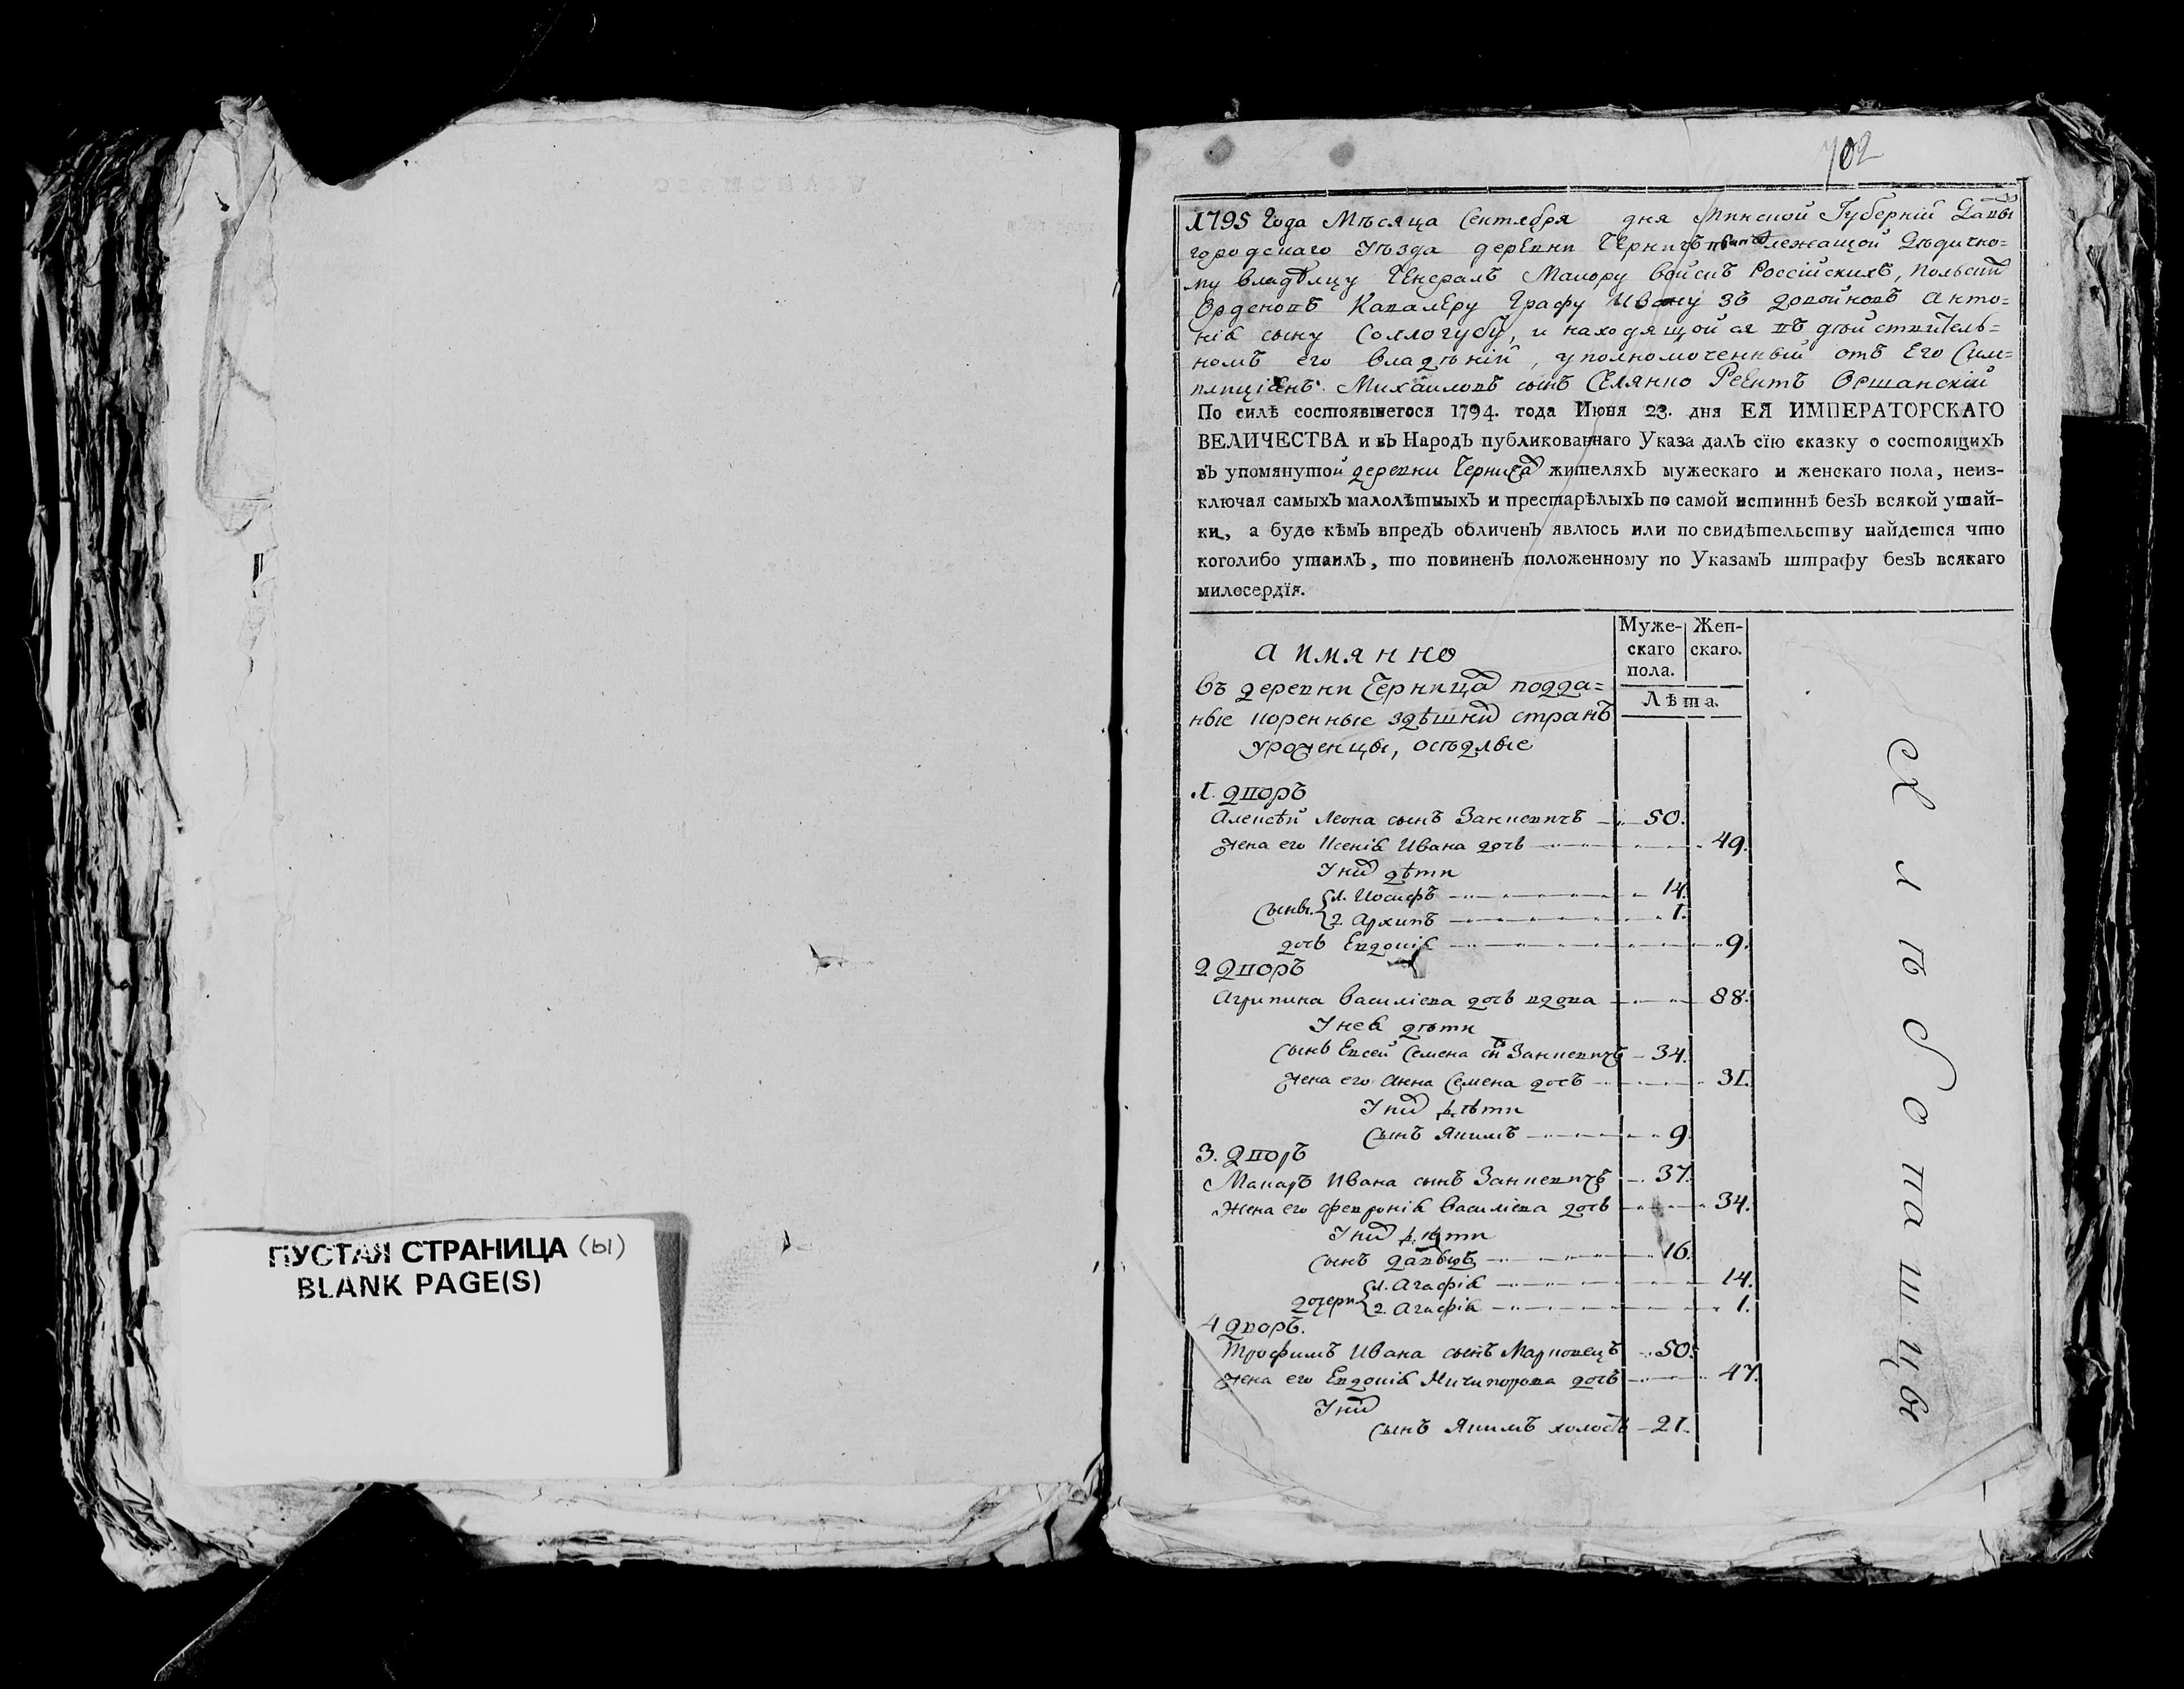 ПУСТАЯ СТРАНИЦА (ы)
BLANK PAGE(S)
702
1795 Года Мѣсяца Сентября дня Минской Губерніи Давы
городскаго Уѣзда деревни лежащой Дѣдично=
му владѣлцу Генералъ Маиору войскъ Россійскихъ, польских
Орденовъ Кавалеру Графу Ивану зъ довойновъ Анто=
нія сыну Соллогубу, и находящойся въ дѣйствитель=
номъ его владѣніи, уполномоченный отъ Его Сим=
плиціянъ Михаиловъ сынъ Селянко Реентъ Оршанскій
По силѣ состоявшегося 1794. года Июня 23. дня ЕЯ ИМПЕРАТОРСКАГО
ВЕЛИЧЕСТВА и въ Народъ публикованнаго Указа далъ сїю сказку о состоящихъ
въ упомянутой деревни Черница жителяхъ мужескаго и женскаго пола, неиз-
ключая самыхъ малолѣтныхъ и престарѣлыхъ по самой истиннѣ безъ всякой утай-
ки, а буде кѣмъ впредъ обличенъ явлюсь или по свидѣтельству найдется что
коголибо утаилъ, то повиненъ положенному по Указамъ штрафу безъ всякаго
милосердїя.
Муже- Жен-
скаго скаго.
пола.
Лѣта.
а имянно
въ деревни Черница подда=
ные коренные здѣшних странъ
уроженцы, осѣдлые
1. дворъ
Алексѣй Леона сынъ Занкевичъ 50.
жена его Ксенія Ивана дочь 49.
У них дѣти
сыны 1. Иосифъ 14.
2. Архипъ 1.
дочь Евдокія 9.
2 дворъ
Агрипина василіева дочь вдова 88.
У нея дѣти
сынъ Евсей Семена снъ Занкевичъ 34.
жена его Анна Семена дочь 31.
У них дѣти
сынъ Якимъ 9
3. дворъ
Макаръ Ивана сынъ Занкевичъ 37.
Жена его Февронія василіева дочь 34.
У них дѣти
сынъ давыдъ 16.
дочери 1. Агафія 14.
2. Агафія 1.
4 дворъ.
Трофимъ Ивана сынъ Марковецъ 50.
жена его Евдокія Ничипорова дочь 47.
У них
сынъ Якимъ холостъ 21.
Хлѣбопашцы